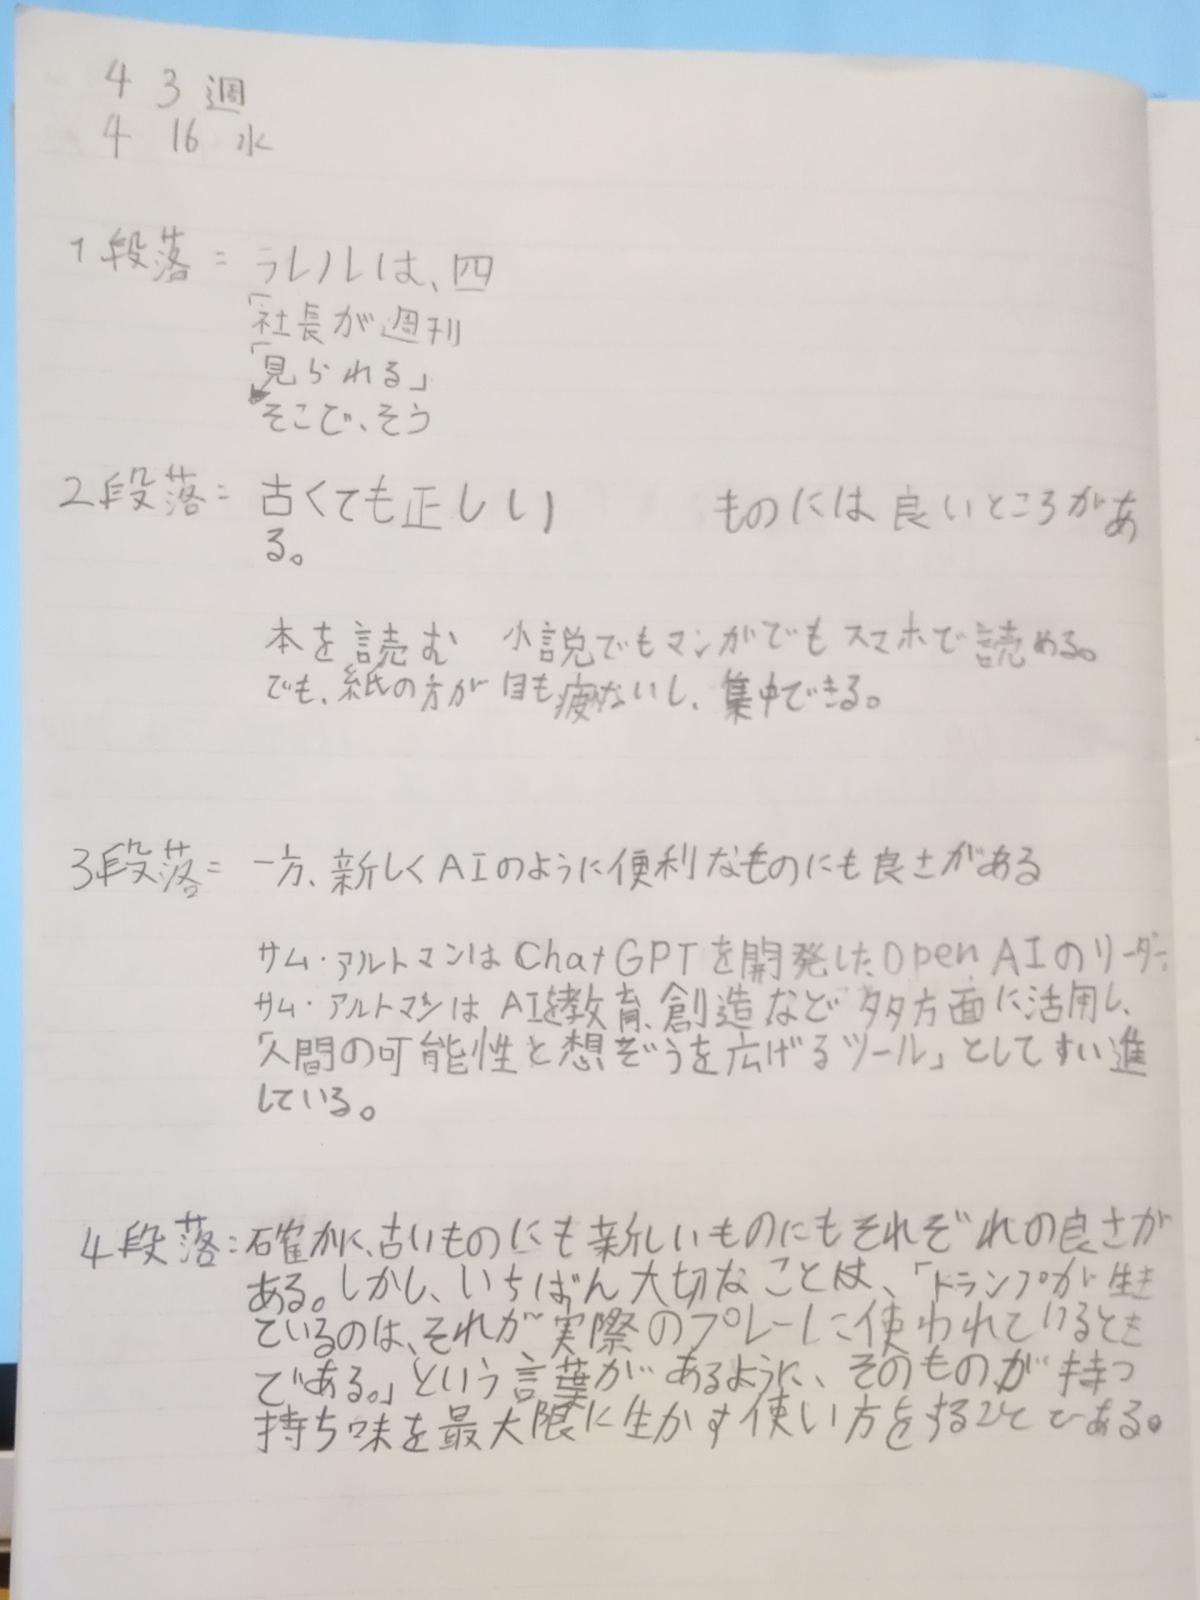 4 3 週
4 16 水
1段落= ラレルは、四
「社長が週刊
「見られる」
そこで、そう
2段落= 古くても正しい ものには良いところがあ
る。
本を読む 小説でもマンガでもスマホで読める。
でも、紙の方が目も疲ないし、集中できる。
3段落= 一方、新しくAIのように便利なものにも良さがある
サム・アルトマンはChatGPTを開発したOpenAIのリーダー。
サム・アルトマンはAIを教育、創造など多方面に活用し、
「人間の可能性と想ぞうを広げるツール」としてすい進
している。
4段落= 確かに、古いものにも新しいものにもそれぞれの良さが
ある。しかし、いちばん大切なことは、「トランプが生き
ているのは、それが実際のプレーに使われているとき
である。」という言葉があるように、そのものが持つ
持ち味を最大限に生かす使い方をすることである。